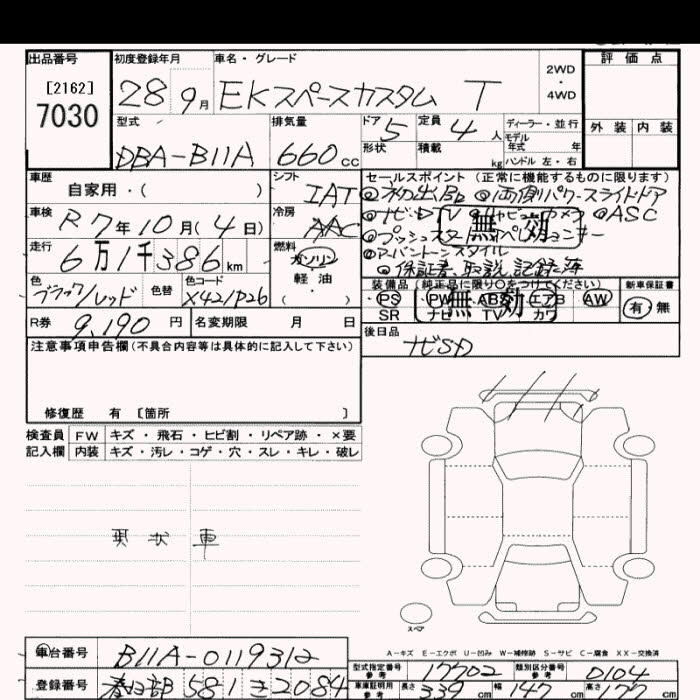 出品番号 初度登録年月 車名・グレード 評価点
[2162]
7030
28 9月 EKスペースカスタム T
2WD
・
4WD
型式 排気量 ドア 定員 ディーラー・並行 外装 内装
5 4人
モデル
年式 年
DBA-B11A 660cc
形状 積載 kg ハンドル 左・右
車歴 シフト セールスポイント (正常に機能するものに限ります)
自家用・( )
IAT
◎初出品 ◎両側パワースライドドア
車検 冷房
R7年10月(4日)
AAC
◎ナビTV カメラ ◎ASC
無 効
走行 燃料
6万1千386km
ガソリン
軽油
◎プッシュスタート
◎アーバントーンスタイル
◎保証書、取説、記録簿
色 色替 色コード
ブラック/レッド X42/P26
装備品 (純正品に限り○をつけてください) 新車保証書
・PS ・PW ・AB エアB AW 有・無
無 効
SR ナビ TV カワ
R券 9,190円 名変期限 月 日
後日品
ナビSD
注意事項申告欄(不具合内容等は具体的に記入して下さい)
修復歴 有 〔箇所 〕
検査員 FW キズ・飛石・ヒビ割・リペア跡・×要
記入欄 内装 キズ・汚レ・コゲ・穴・スレ・キレ・破レ
現状車
スペア
A-キズ E-エクボ U-凹み W-補修跡 S-サビ C-腐食 XX-交換済
車台番号 B11A-0119312
型式指定番号
参考
17702
類別区分番号
参考
0104
登録番号 春日部 581 き 2084
車庫証明用
参考
長さ 339cm 幅 147cm 高さ cm